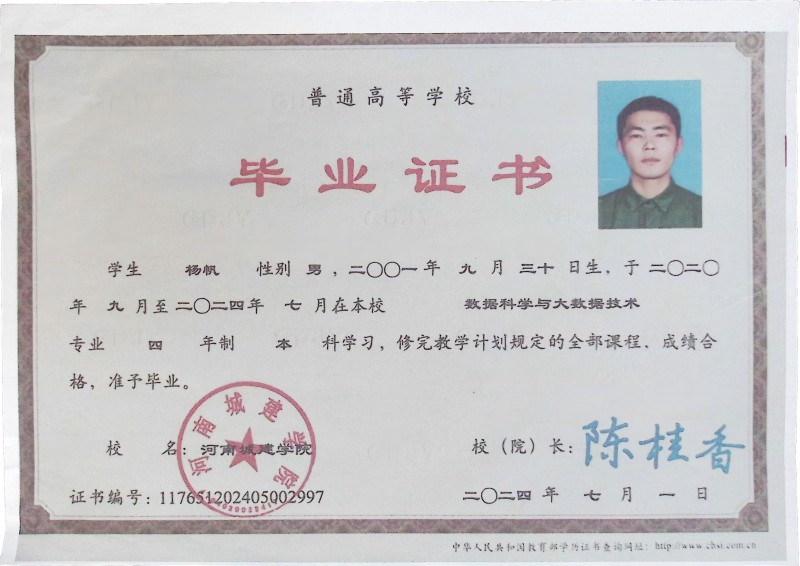 普通高等学校
毕业证书
学生 杨帆 性别 男，二〇〇一年 九 月 三十 日生，于 二〇二〇
年 九 月至二〇二四年 七 月在本校 数据科学与大数据技术
专业 四 年制 本 科学习，修完教学计划规定的全部课程、成绩合
格，准予毕业。
河南城建学院
校 名：河南城建学院
校（院）长：陈桂香
证书编号：117651202405002997
二〇二四年 七 月 一 日
中华人民共和国教育部学历证书查询网址：http://www.chsi.com.cn